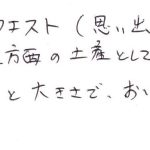 クエスト（思い出
方面の土産として
と大きさで、おい